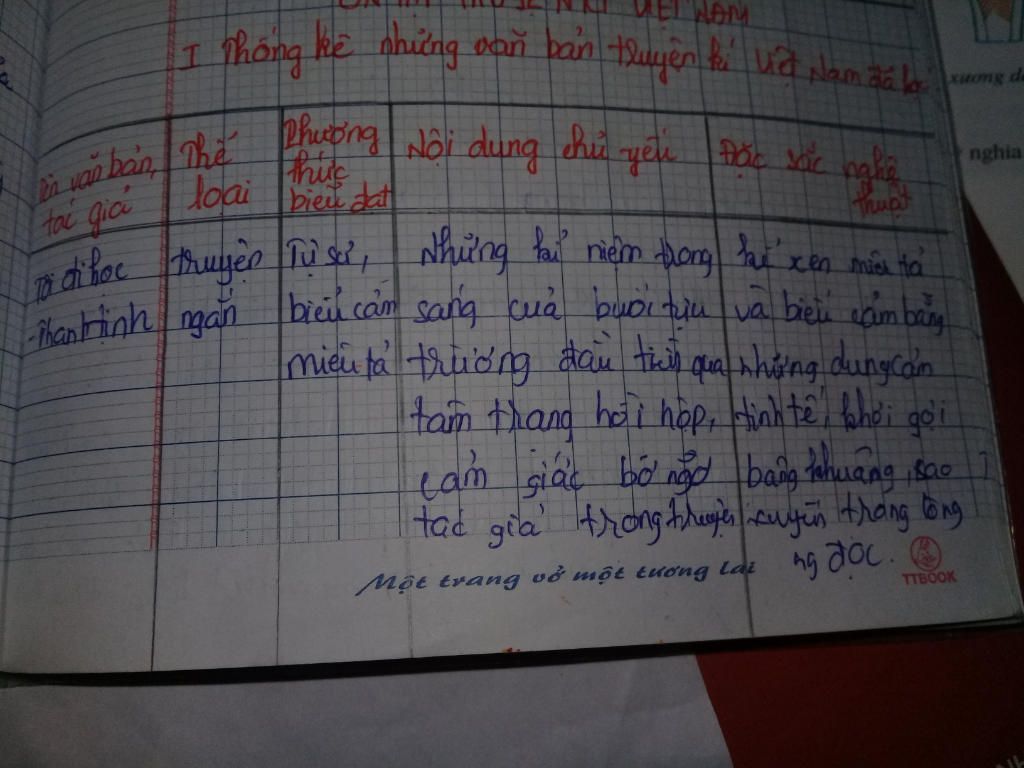 ÔN TẬP TRUYỆN KÍ VIỆT NAM
I Thống kê những văn bản truyện kí Việt Nam đã
xương
nghia
Tên văn bản,
tác giả
Thể
loại
Phương
thức
biểu đạt
Nội dung chủ yếu
Đặc sắc nghệ
thuật
Tôi đi học
-Thanh Tịnh
truyện
ngắn
Tự sự,
biểu cảm
miêu tả
Những kỉ niệm trong
sáng của buổi tựu
trường đầu tiên qua
tâm trạng hồi hộp,
cảm giác bỡ ngỡ
tác giả trong truyện
kể xen miêu tả
và biểu cảm bằng
những dung cảm
tinh tế, khơi gợi
bâng khuâng, sao
xuyến trong lòng
ng đọc.
Một trang vở một tương lai
TTBOOK